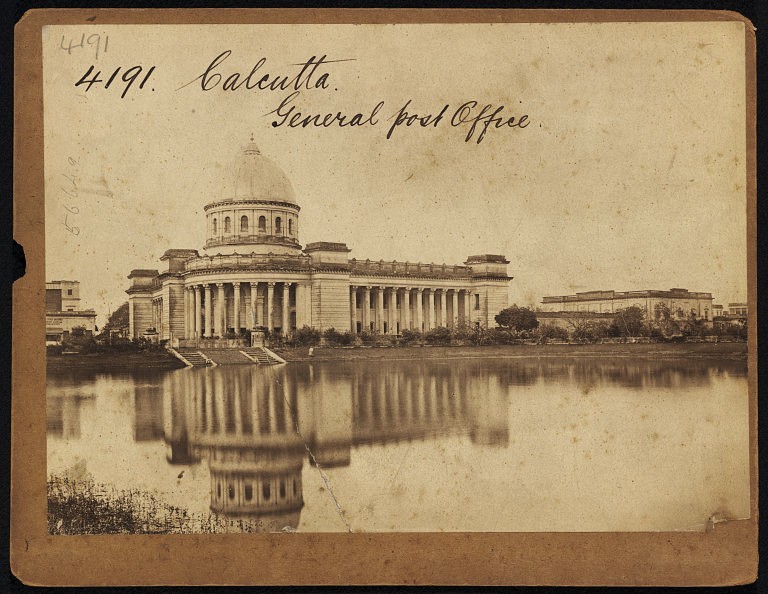 4191
4191. Calcutta.
General post Office.